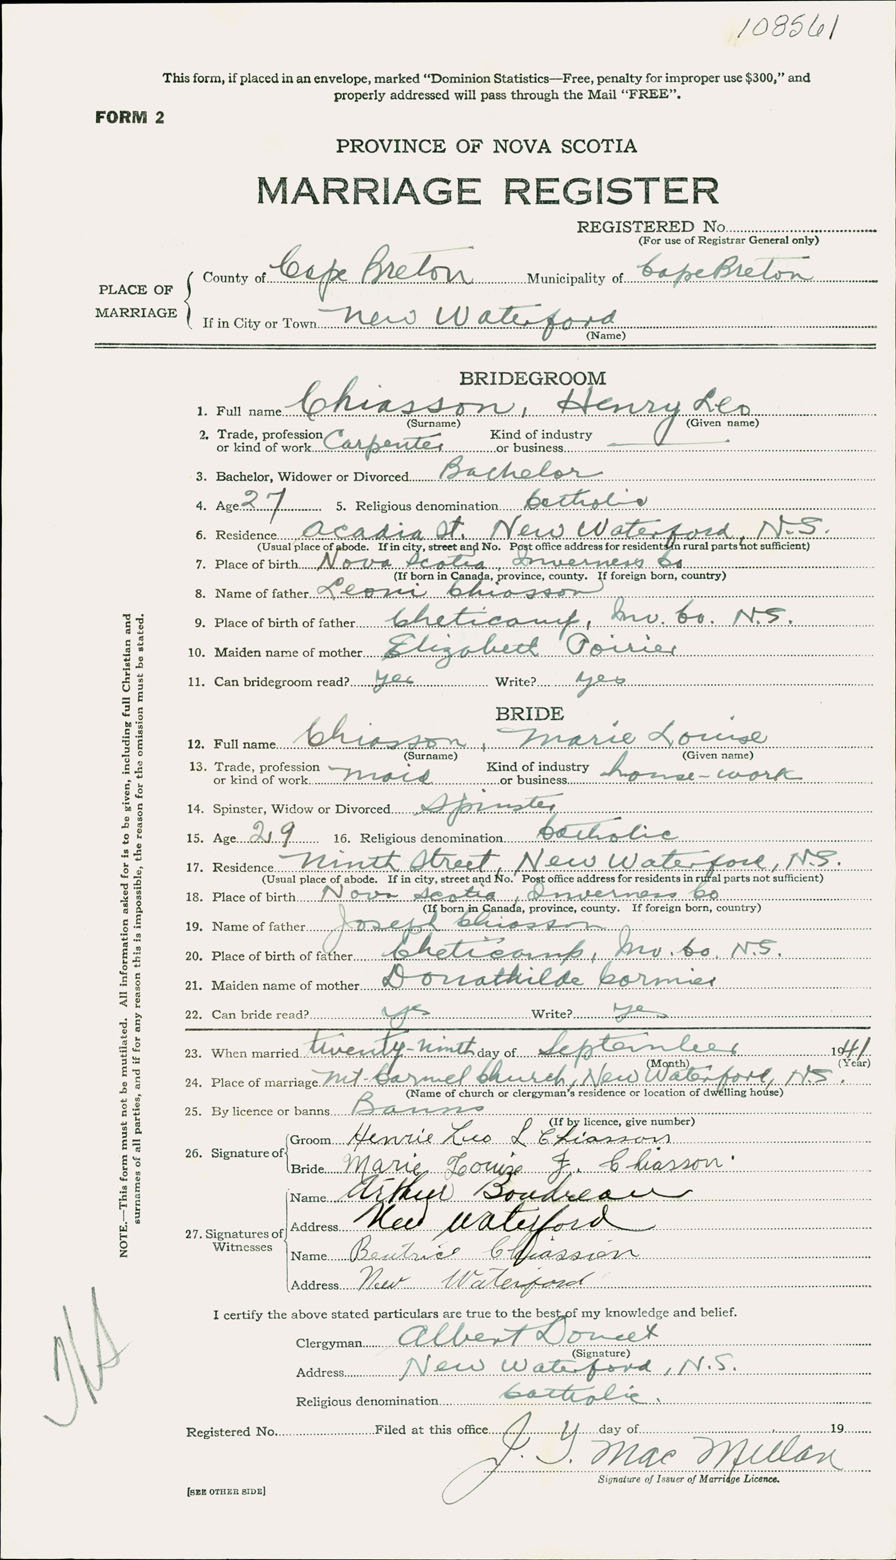 108561
This form, if placed in an envelope, marked "Dominion Statistics—Free, penalty for improper use $300," and
properly addressed will pass through the Mail "FREE".
FORM 2
PROVINCE OF NOVA SCOTIA
MARRIAGE REGISTER
REGISTERED No.
(For use of Registrar General only)
PLACE OF MARRIAGE
County of Cape Breton Municipality of Cape Breton
If in City or Town New Waterford
(Name)
BRIDEGROOM
1. Full name Chiasson, Henry Leo
(Surname) (Given name)
2. Trade, profession or kind of work Carpenter Kind of industry or business —
3. Bachelor, Widower or Divorced Bachelor
4. Age 27 5. Religious denomination Catholic
6. Residence Acadia St. New Waterford, N.S.
(Usual place of abode. If in city, street and No. Post office address for residents in rural parts not sufficient)
7. Place of birth Nova Scotia, Inverness Co
(If born in Canada, province, county. If foreign born, country)
8. Name of father Leoni Chiasson
9. Place of birth of father Cheticamp, Inv. Co. N.S.
10. Maiden name of mother Elizabeth Poirier
11. Can bridegroom read? yes Write? yes
BRIDE
12. Full name Chiasson, Marie Louise
(Surname) (Given name)
13. Trade, profession or kind of work maid Kind of industry or business house-work
14. Spinster, Widow or Divorced Spinster
15. Age 29 16. Religious denomination Catholic
17. Residence Ninth Street, New Waterford, N.S.
(Usual place of abode. If in city, street and No. Post office address for residents in rural parts not sufficient)
18. Place of birth Nova Scotia, Inverness Co
(If born in Canada, province, county. If foreign born, country)
19. Name of father Joseph Chiasson
20. Place of birth of father Cheticamp, Inv. Co. N.S.
21. Maiden name of mother Donathilde Cormier
22. Can bride read? yes Write? yes
23. When married twenty-ninth day of September 1941
(Month) (Year)
24. Place of marriage Mt. Carmel Church, New Waterford, N.S.
(Name of church or clergyman's residence or location of dwelling house)
25. By licence or banns Banns
(If by licence, give number)
26. Signature of
Groom Henrie Leo L Chiasson
Bride Marie Louise F. Chiasson
27. Signatures of Witnesses
Name Arthur Boudreau
Address New Waterford
Name Beatrice Chiassion
Address New Waterford
I certify the above stated particulars are true to the best of my knowledge and belief.
Clergyman Albert Doucet
(Signature)
Address New Waterford, N.S.
Religious denomination Catholic.
Registered No. Filed at this office day of 19
J. Y. MacMillan
Signature of Issuer of Marriage Licence.
[SEE OTHER SIDE]
NOTE.—This form must not be mutilated. All information asked for is to be given, including full Christian and
surnames of all parties, and if for any reason this is impossible, the reason for the omission must be stated.